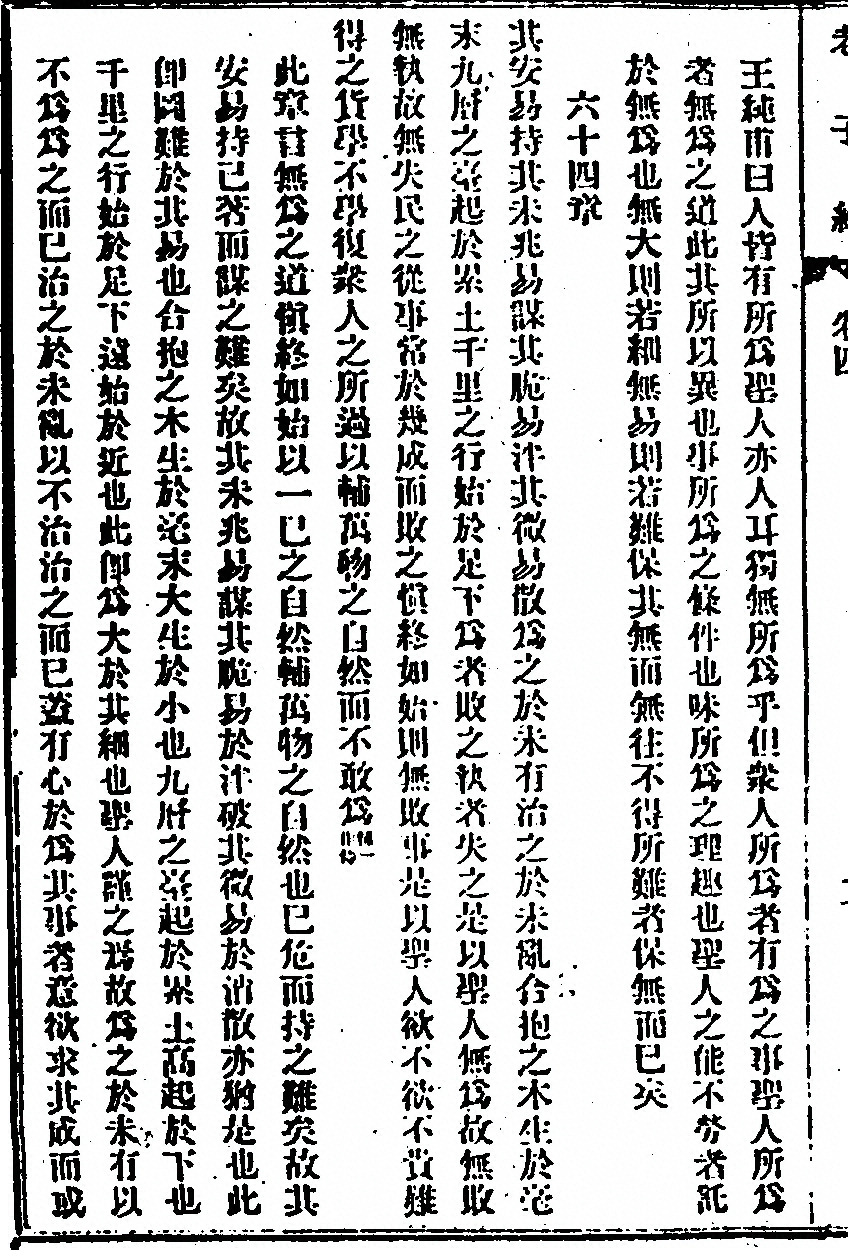 王純甫曰人皆有所爲聖人亦人耳獨無所爲乎但衆人所爲者有爲之事聖人所爲
者無爲之道此其所以異也事所爲之條件也味所爲之理趣也聖人之能不勞者託
於無爲也無大則若細無易則若難保其無而無往不得所難者保無而已矣
六十四章
其安易持其未兆易謀其脆易泮其微易散爲之於未有治之於未亂合抱之木生於毫
末九層之臺起於累土千里之行始於足下爲者敗之執者失之是以聖人無爲故無敗
無執故無失民之從事常於幾成而敗之愼終如始則無敗事是以聖人欲不欲不貴難
得之貨學不學復衆人之所過以輔萬物之自然而不敢爲
此章言無爲之道愼終如始以一已之自然輔萬物之自然也已危而持之難矣故其
安易持已著而謀之難矣故其未兆易謀其脆易於泮破其微易於消散亦猶是也此
卽圖難於其易也合抱之木生於毫末大生於小也九層之臺起於累土高起於下也
千里之行始於足下遠始於近也此卽爲大於其細也聖人謹之爲故爲之於未有以
不爲爲之而已治之於未亂以不治治之而已蓋有心於爲其事者意欲求其成而或
老子
卷四